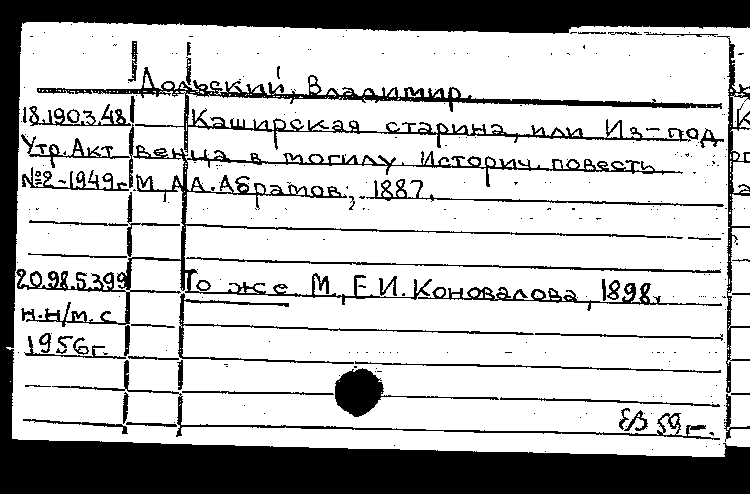 Дольский, Владимир.
18.190.3.48 Каширская старина, или Из-под
Утр. Акт венца в могилу. Историч. повесть.
№2-1949г. М, А.А. Абрамов, 1887.
20.98.5.399 То же М., Е.И. Коновалова, 1898.
н.н/м.с
1956г.
59г.